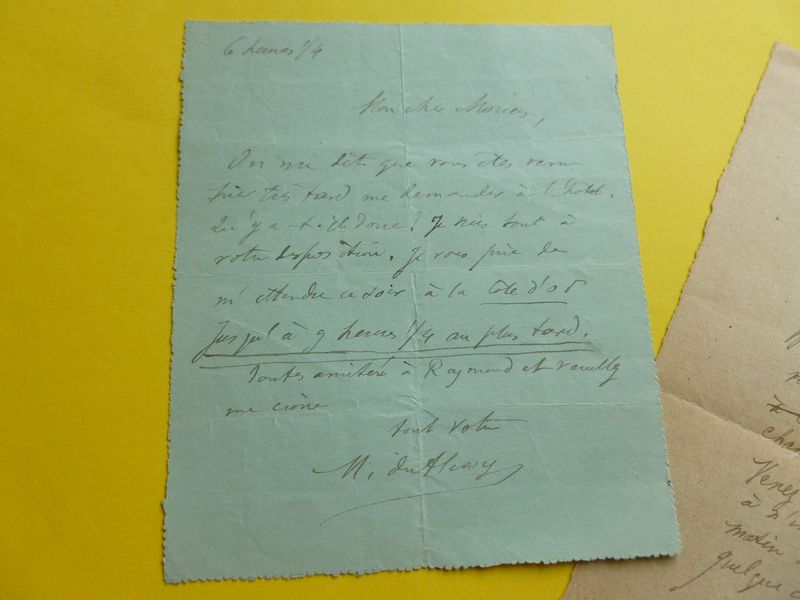 6 heures 1/4
Mon cher Moréas,
On me dit que vous êtes venu
hier très tard me demander à l'hotel.
Qu'y a-t-il donc! Je suis tout à
votre disposition. Je vous prie de
m'attendre ce soir à la Côte d'or
jusqu'à 9 heures 1/4 au plus tard.
Toutes amitiés à Raymond et veuillez
me croire
tout votre
M. du Plessys
Venez
à n'
matin
quelque